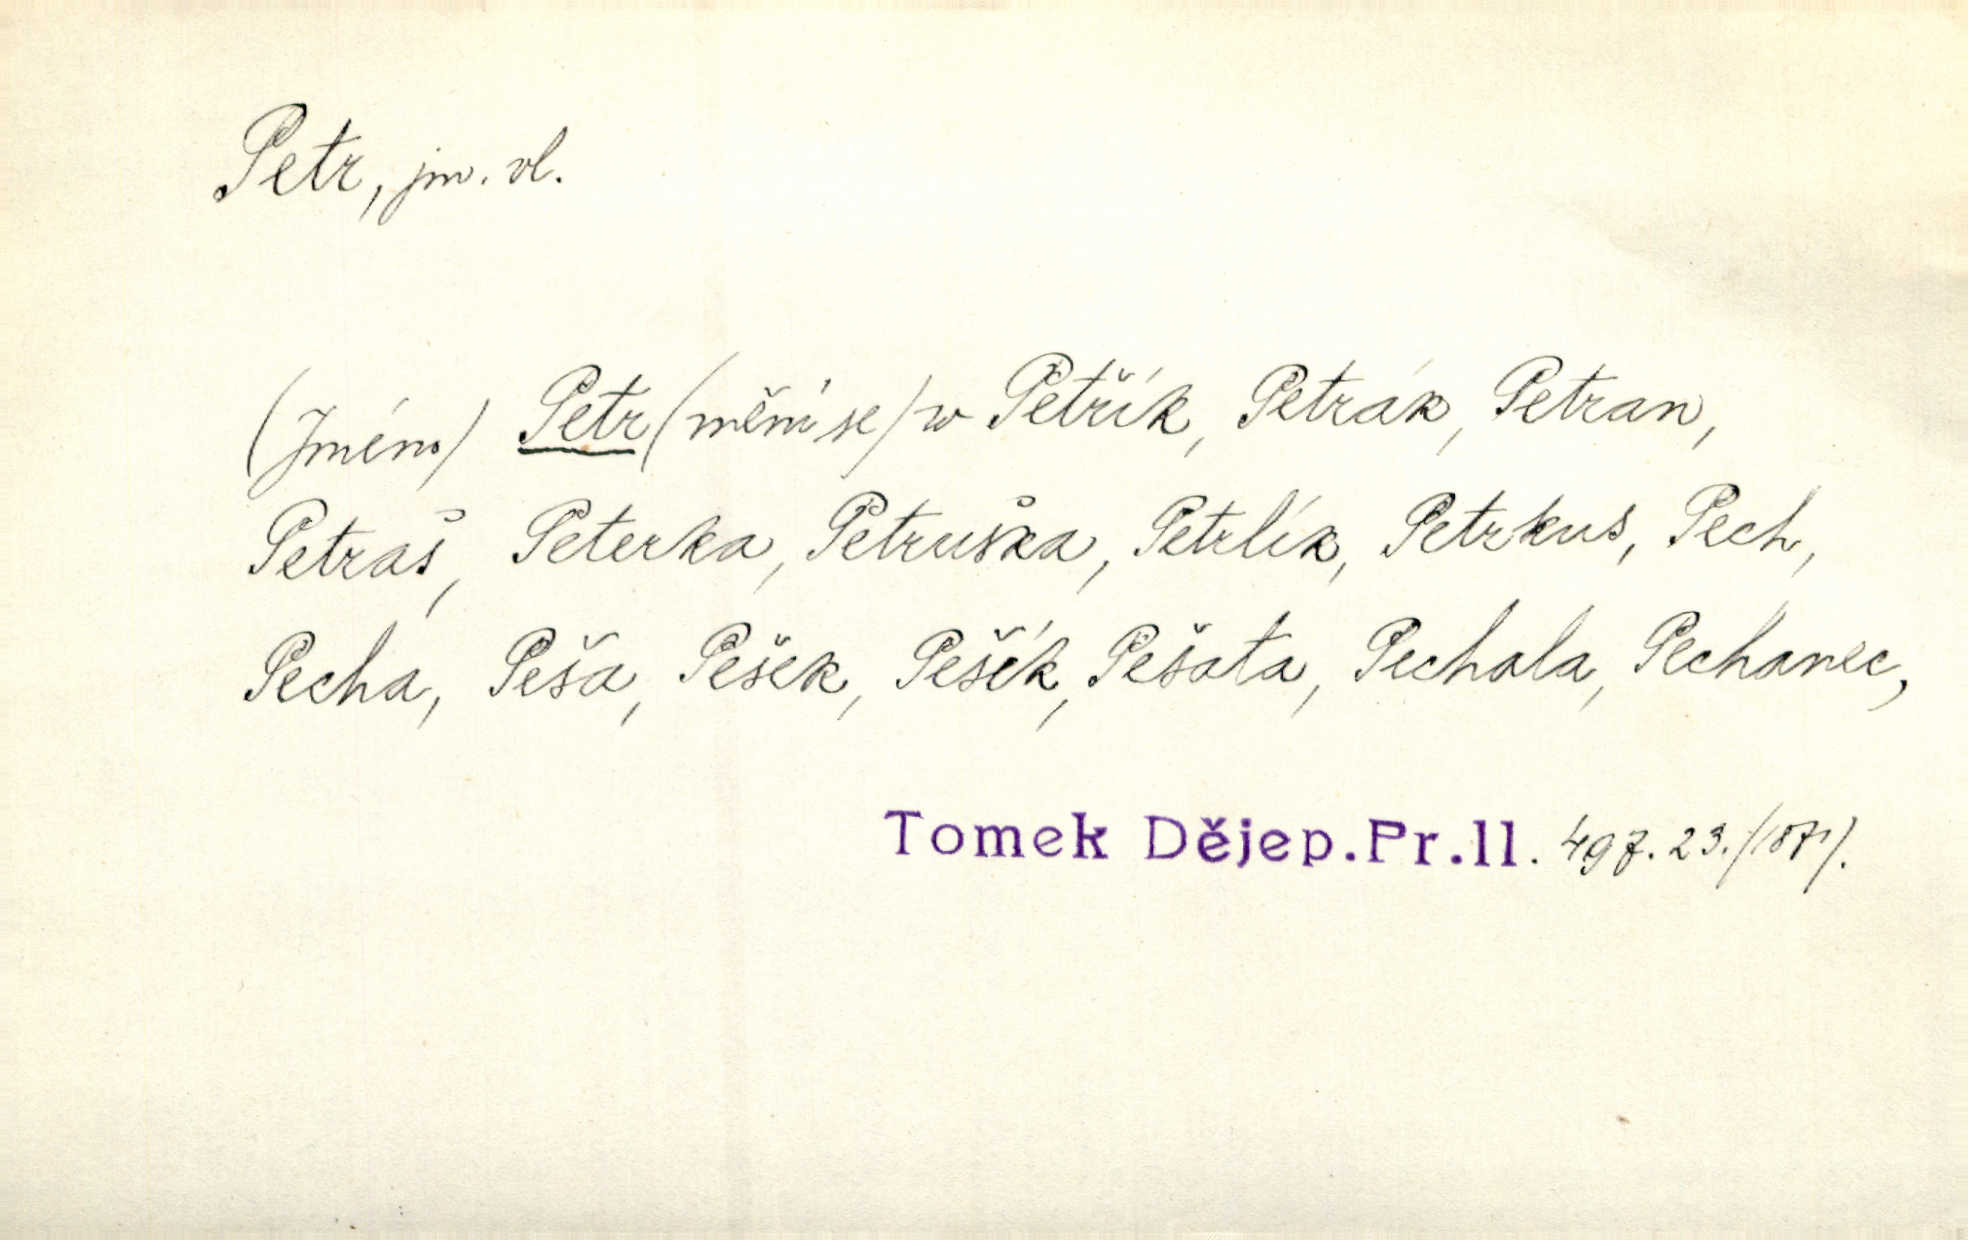 Petr, jm. vl.
(Jméno) Petr (mění se) w Petřík, Petrák, Petran,
Petraš, Peterka, Petruška, Petrlík, Petrkus, Pech,
Pecha, Peša, Pešek, Pešík, Pešata, Pechala, Pechanec,
Tomek Dějep.Pr.II. 497. 23. (1871).